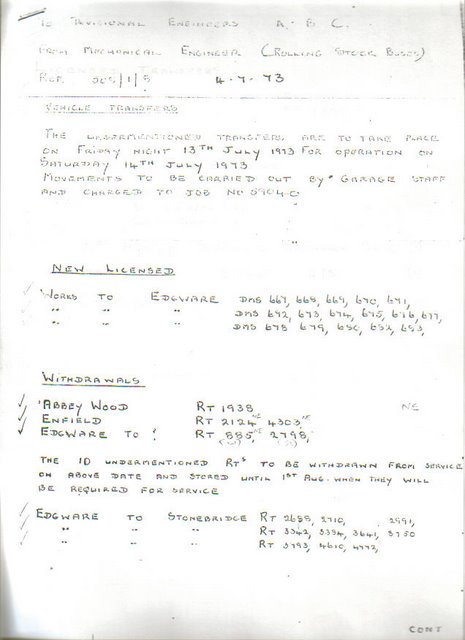 TO DIVISIONAL ENGINEERS A. B C.
FROM MECHANICAL ENGINEER (ROLLING STOCK BUSES)
REF. /1/5 4-7-73
VEHICLE TRANSFERS
THE UNDERMENTIONED TRANSFERS ARE TO TAKE PLACE
ON FRIDAY NIGHT 13TH JULY 1973 FOR OPERATION ON
SATURDAY 14TH JULY 1973
MOVEMENTS TO BE CARRIED OUT BY GARAGE STAFF
AND CHARGED TO JOB NO 5904.0
NEW LICENSED
WORKS TO EDGWARE DMS 667, 668, 669, 670, 671,
" " " DMS 672, 673, 674, 675, 676, 677,
" " " DMS 678 679, 680, 682, 683,
WITHDRAWALS
ABBEY WOOD RT 1938 NE
ENFIELD RT 2124 NE 4303 NE
EDGWARE TO RT 885 NE 2798,
(W) (W)
THE 10 UNDERMENTIONED RTS TO BE WITHDRAWN FROM SERVICE
ON ABOVE DATE AND STORED UNTIL 1ST AUG. WHEN THEY WILL
BE REQUIRED FOR SERVICE
EDGWARE TO STONEBRIDGE RT 2688, 2710, 2991,
" " " RT 3342, 3394, 3641, 3750
" " " RT 3793, 4610, 4772,
CONT